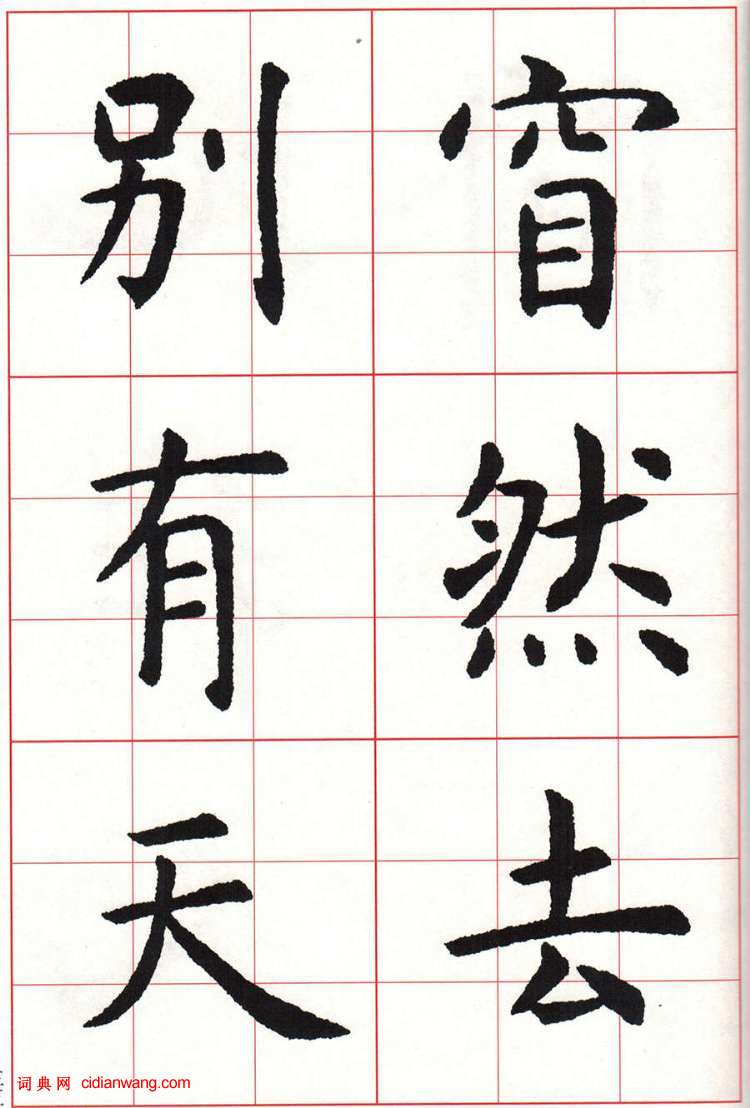 窅然去
别有天
词典网 cidianwang.com